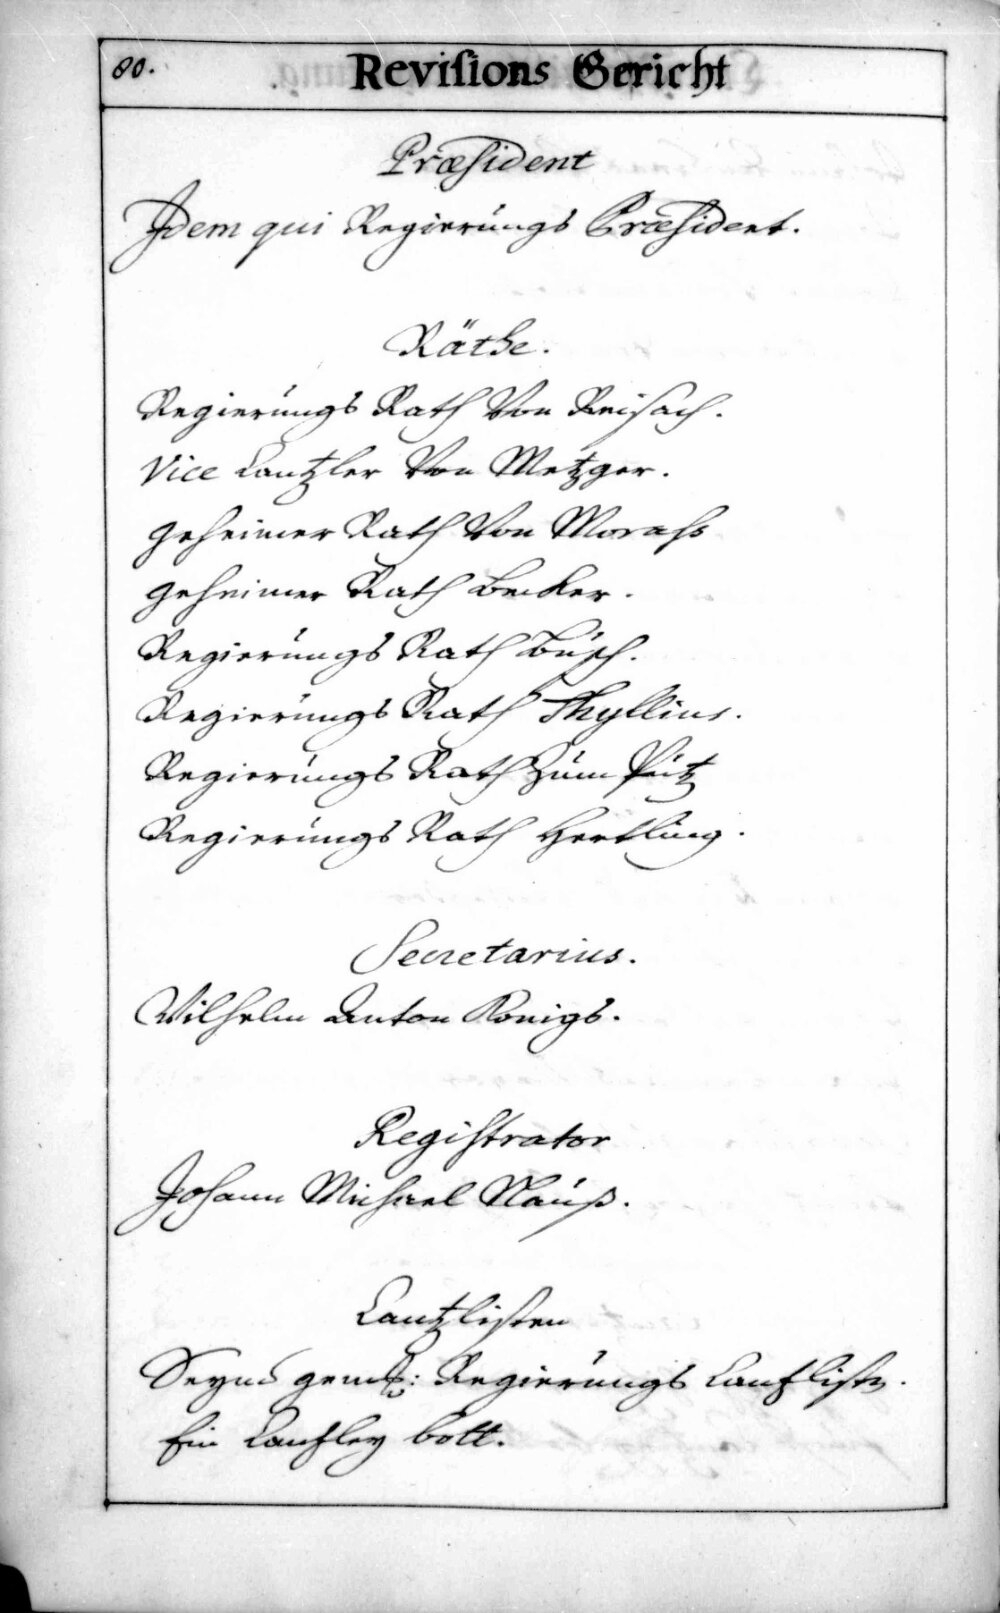 80.
Revisions Gericht
Præsident
Idem qui Regierungs Præsident.
Räthe.
Regierungs Rath Von Reisach.
Vice Cantzler Von Metzger.
geheimer Rath Von Morass
geheimer Rath Becker.
Regierungs Rath Busch.
Regierungs Rath Thyllius.
Regierungs Rath Zum Pütz
Regierungs Rath Hertling.
Secretarius.
Wilhelm Anton Konigs.
Registrator
Johann Michael Nauß.
Cantzlisten
Seynd Regierungs Cantzlisten.
Ein Cantzley bott.